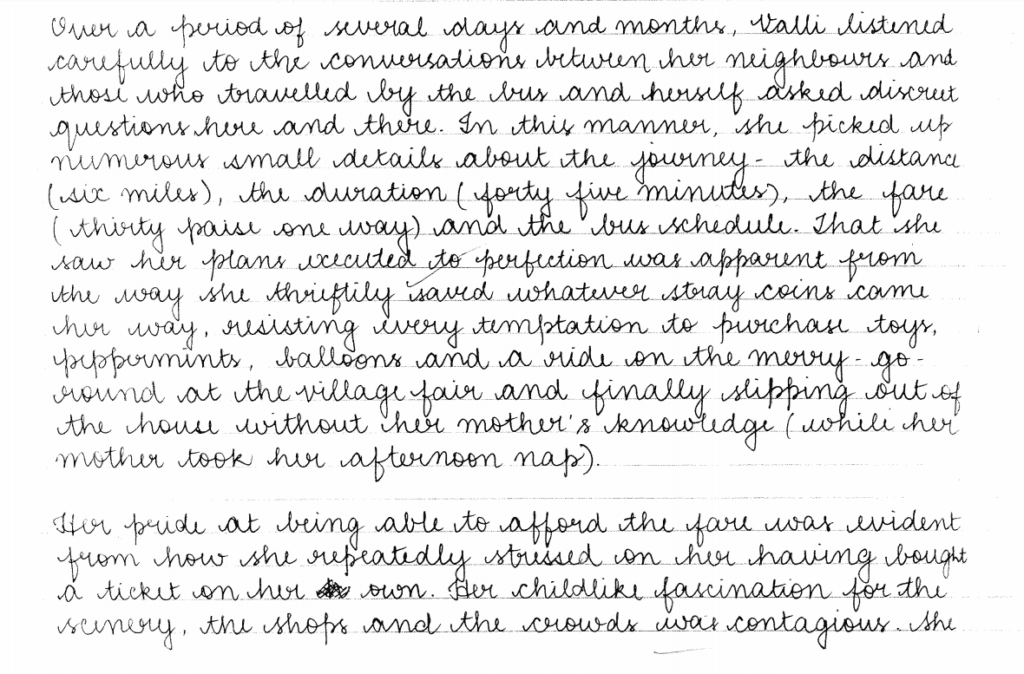 Over a period of several days and months, Valli listened
carefully to the conversations between her neighbours and
those who travelled by the bus and herself asked discreet
questions here and there. In this manner, she picked up
numerous small details about the journey - the distance
(six miles), the duration (forty five minutes), the fare
(thirty paise one way) and the bus schedule. That she
saw her plans executed to perfection was apparent from
the way she thriftily saved whatever stray coins came
her way, resisting every temptation to purchase toys,
peppermints, balloons and a ride on the merry-go-
round at the village fair and finally slipping out of
the house without her mother's knowledge (while her
mother took her afternoon nap).
Her pride at being able to afford the fare was evident
from how she repeatedly stressed on her having bought
a ticket on her own. Her childlike fascination for the
scenery, the shops and the crowds was contagious. She